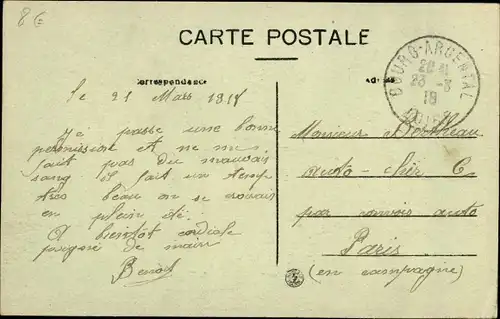 8 €
CARTE POSTALE
Correspondance
Adresse
BOURG-ARGENTAL
23 - 3
18
le 21 Mars 1918
Je passe une bonne
permission et ne me
fait pas du mauvais
sang il fait un temps
tres beau on se croirait
en plein été.
A bientôt cordiale
poignée de main
Benoit
Monsieur Bertheau
auto-chir C
par convois auto
Paris
(en campagne)